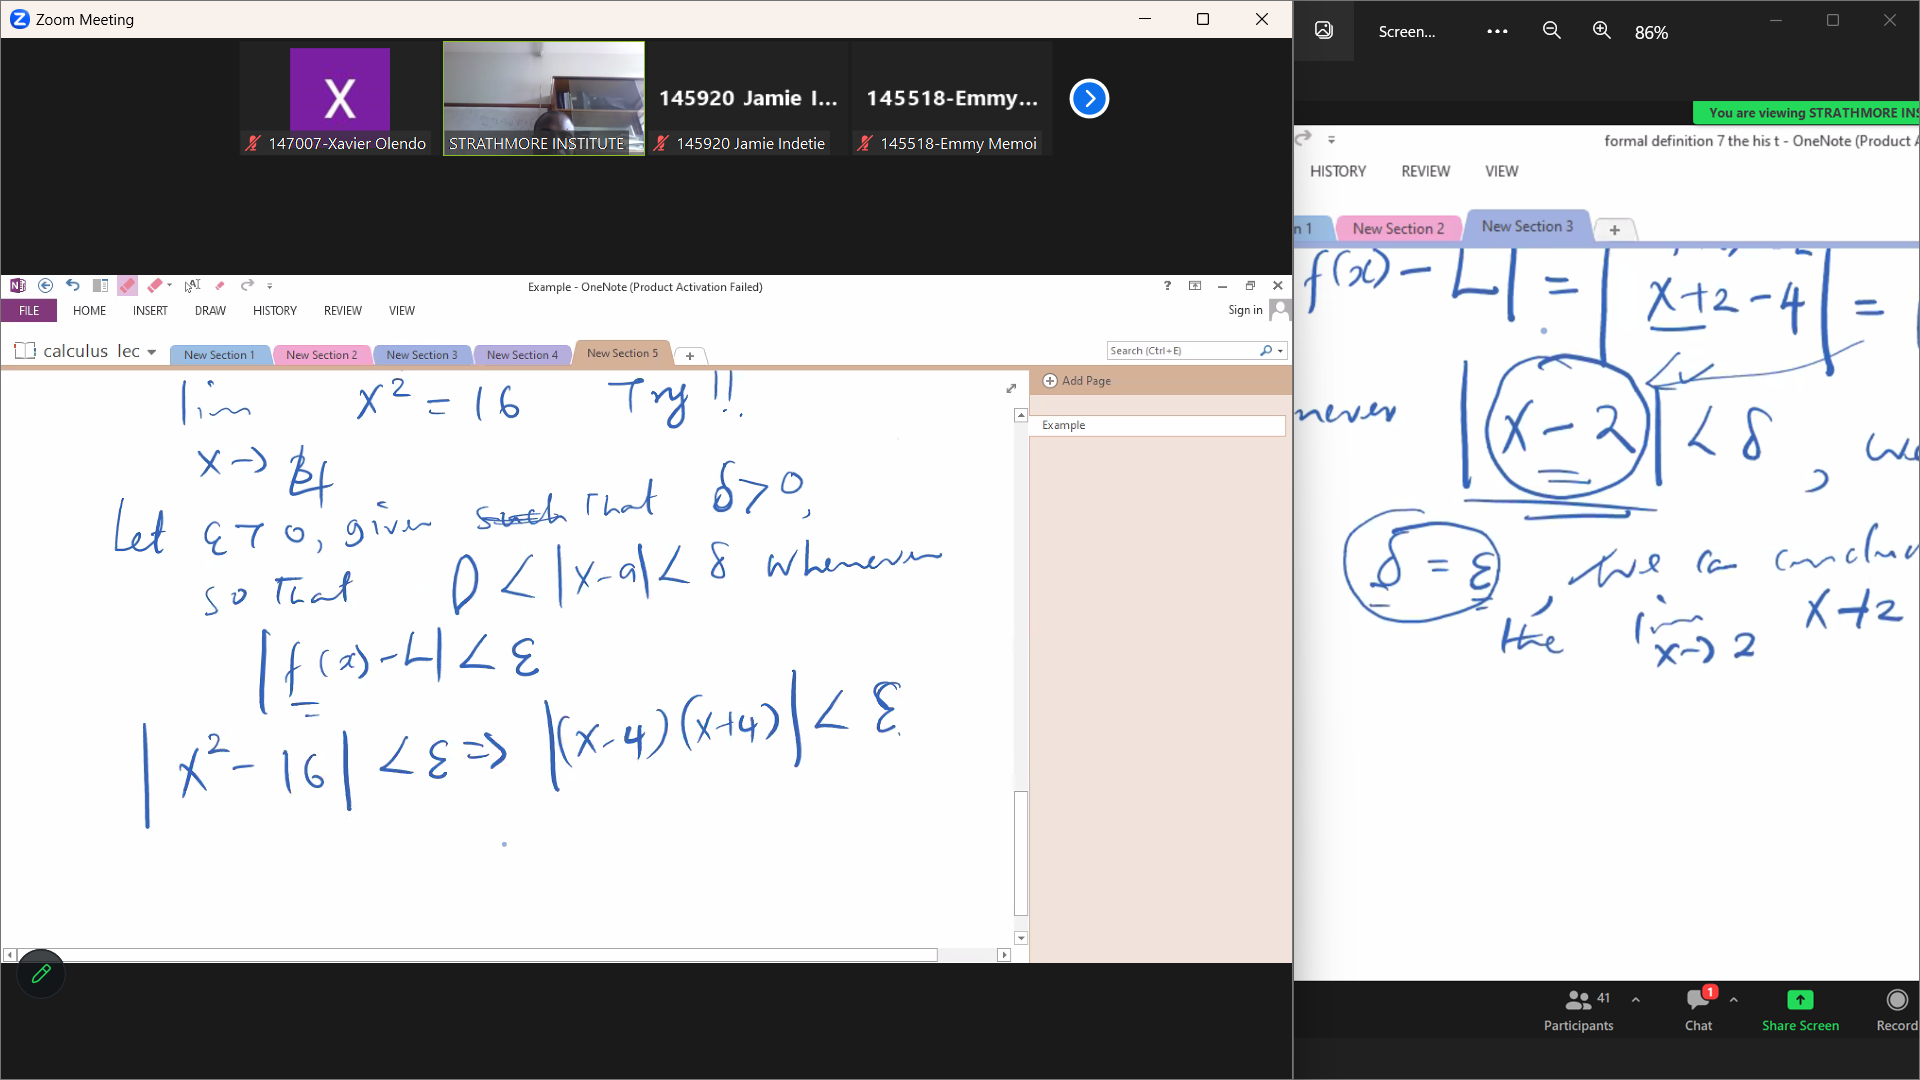 Zoom Meeting
X
147007-Xavier Olendo
STRATHMORE INSTITUTE
145920 Jamie I...
145920 Jamie Indetie
145518-Emmy...
145518-Emmy Memoi
Example - OneNote (Product Activation Failed)
FILE HOME INSERT DRAW HISTORY REVIEW VIEW
Sign in
calculus lec
New Section 1 New Section 2 New Section 3 New Section 4 New Section 5
Search (Ctrl+E)
Add Page
Example
lim x² = 16 Try !!
x →
Let ε > 0, given such that δ > 0,
so that 0 < |x-a| < δ whenever
|f(x) - L| < ε
|x² - 16| < ε => |(x-4)(x+4)| < ε
Screen...
86%
You are viewing STRATHMORE INS
formal definition 7 the his t - OneNote (Product A
HISTORY REVIEW VIEW
n 1 New Section 2 New Section 3
f(x) - L| = | x+2-4 | =
never |x - 2| < δ, we
δ = ε, we can conclud
the lim x+2
x→2
41
1
Participants Chat Share Screen Record